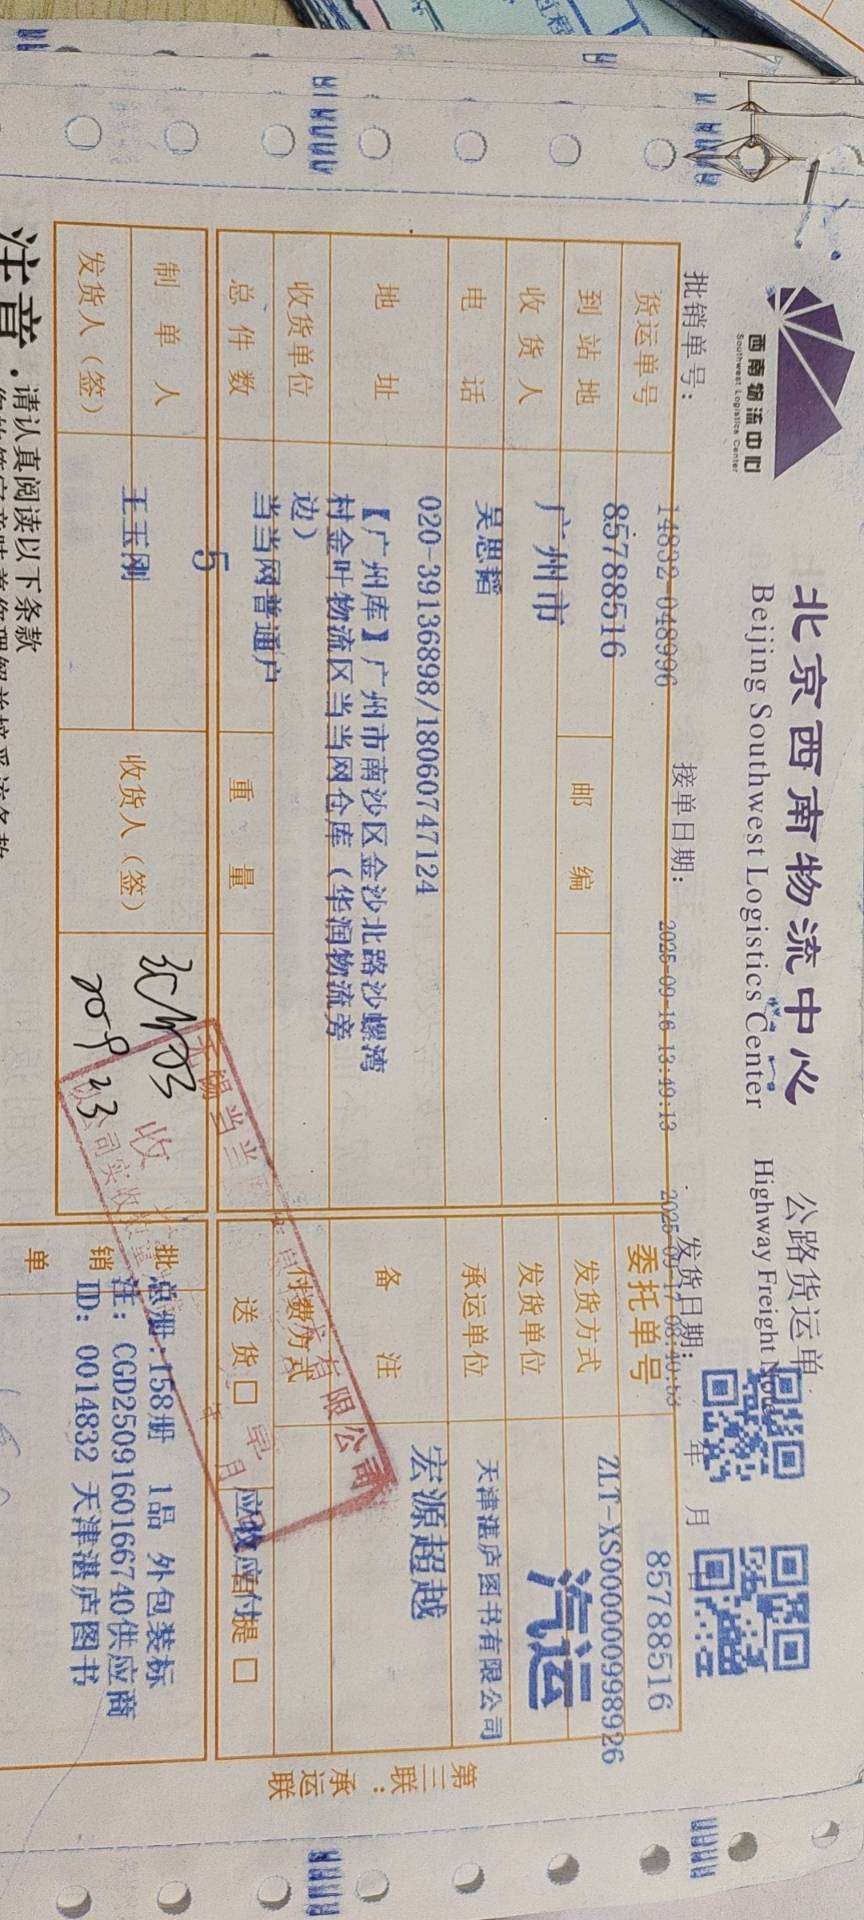 西南物流中心
Southwest Logistics Center
北京西南物流中心
Beijing Southwest Logistics Center
公路货运单
Highway Freight
批销单号：
14832-048996
接单日期：
2025-09-16 13:49:13
发货日期：
2025-09-17 08:40:53
年 月 日
货运单号
85788516
委托单号
85788516
ZLT-XS00000099892​6
到站地
广州市
邮编
发货方式
汽运
收货人
吴思韬
发货单位
天津湛庐图书有限公司
电话
020-39136898/18060747124
承运单位
宏源超越
地址
【广州库】广州市南沙区金沙北路沙螺湾
村金叶物流区当当网仓库（华润物流旁
边）
备注
收货单位
当当网普通户
付费方式
应收应付
总件数
5
重量
送货口
自提口
制单人
王玉刚
发货人（签）
收货人（签）
批销单
总册：158册 1品 外包装标
注：CGD25091601667​40供应商
ID：0014832 天津湛庐图书
第三联：承运联
无锡当当
有限公司
注意
请认真阅读以下条款